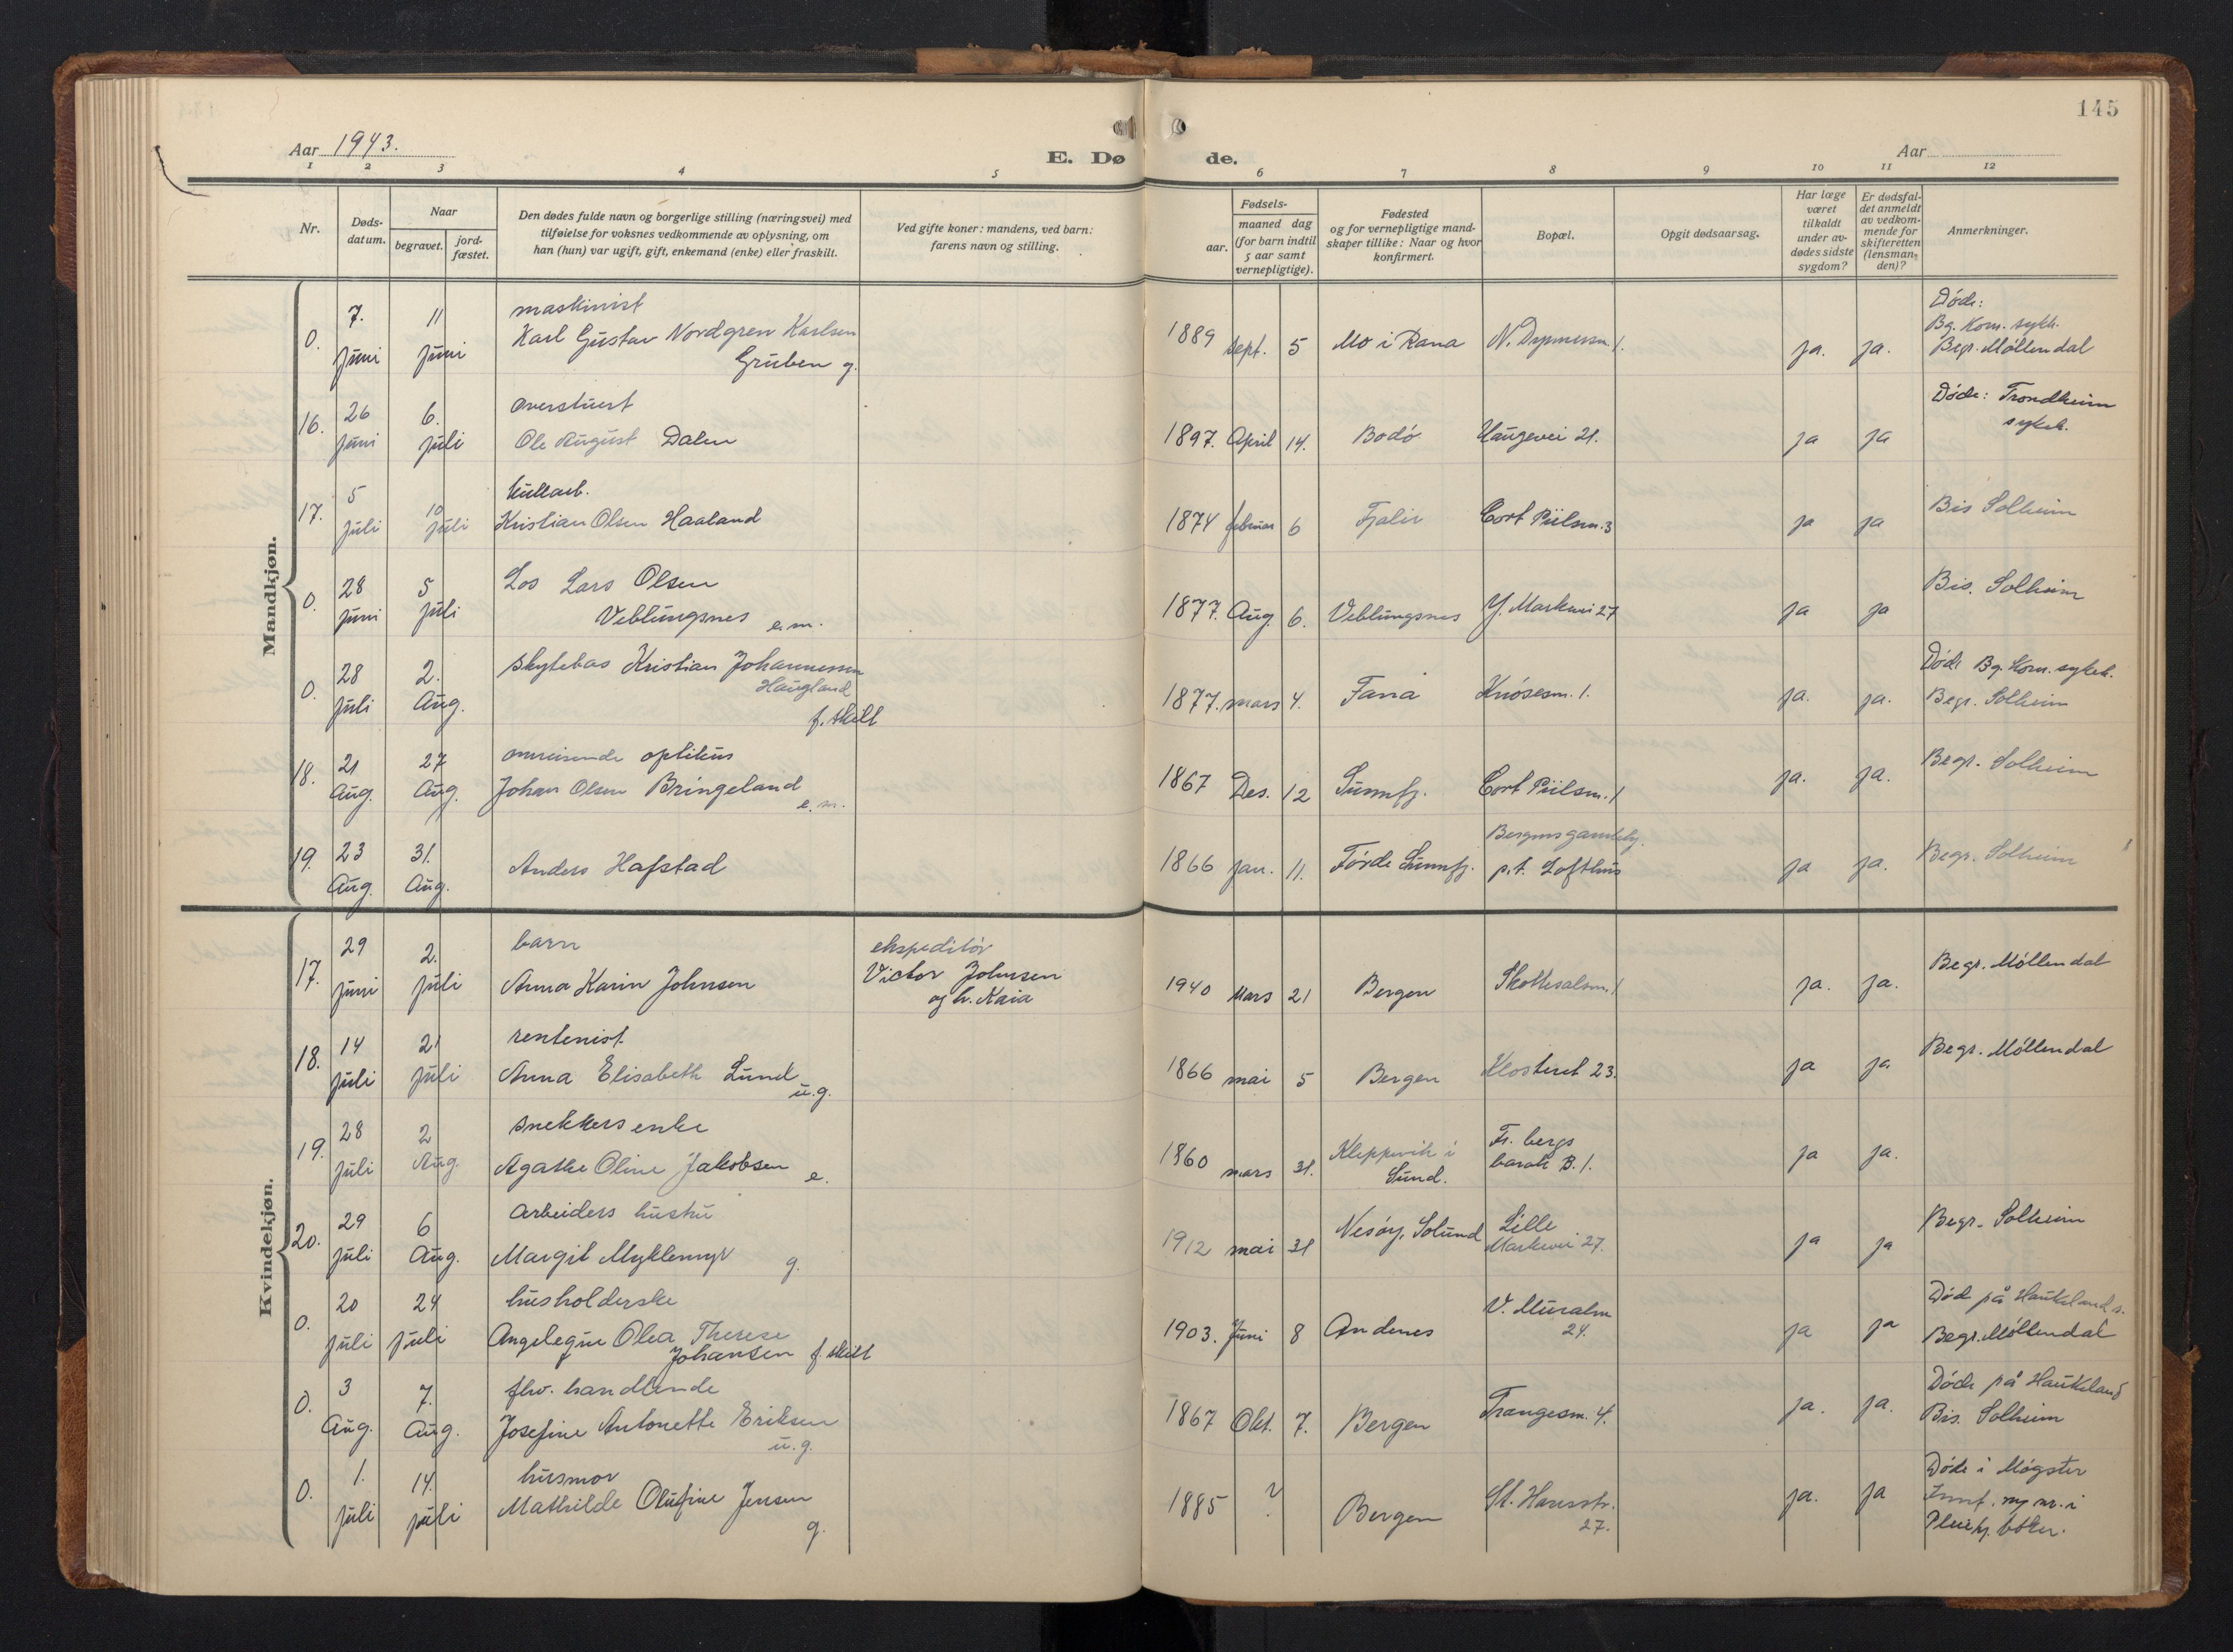 145
Aar 1943.
E. Dø de.
Aar
1 2 3 4 5 6 7 8 9 10 11 12
Nr.
Døds-
datum.
Naar
begravet.
jord-
fæstet.
Den dødes fulde navn og borgerlige stilling (næringsvei) med
tilføielse for voksnes vedkommende av oplysning, om
han (hun) var ugift, gift, enkemand (enke) eller fraskilt.
Ved gifte koner: mandens, ved barn:
farens navn og stilling.
Fødsels-
aar.
maaned dag
(for barn indtil
5 aar samt
vernepligtige).
Fødested
og for vernepligtige mand-
skaper tillike: Naar og hvor
konfirmert.
Bopæl.
Opgit dødsaarsag.
Har læge
været
tilkaldt
under av-
dødes sidste
sygdom?
Er dødsfal-
det anmeldt
av vedkom-
mende for
skifteretten
(lensman-
den)?
Anmerkninger.
Mandkjøn.
0. 7. juni 11 juni
maskinist
Karl Gustav Nordgren Karlsen
Gruben g.
1889 sept. 5 Mo i Rana 1. ja. ja.
Døde:
Bg. Kom. sykh.
Begr. Møllendal
16. 26 juni 6. juli
overstuert
Ole August Dalen
1897. April 14. Bodø Haugevei 21. ja ja
Døde: Trondheim
sykeh.
17. 5 juli 10 juli
kullarb.
Kristian Olsen Haaland
1874 februar 6 Fjaler Cort Piilsm. 3 ja ja
Bis Solheim
0. 28 juni 5 juli
Los Lars Olsen
Veblungsnes e.m.
1877. Aug. 6. Veblungsnes Y. Markevei 27 ja ja
Bis. Solheim
0. 28 juli 2. Aug.
skytebas Kristian Johannessen
Haugland
f. skilt
1877. mars 4. Fana Knøsesm. 1. ja. ja.
Døde Bg. Kom. sykeh.
Begr. Solheim
18. 21 Aug. 27 Aug.
omreisende optikus
Johan Olsen Bringeland
e. m.
1867 Des. 12 Sunnfj. Cort Piilsm. 1 ja. ja.
Begr. Solheim
19. 23 Aug. 31. Aug.
Anders Hafstad
1866 jan. 11. Førde Sunnfj.
Bergens gamleby.
p.t. Lofthus ja ja.
Begr. Solheim
Kvindekjøn.
17. 29 juni 2. juli
barn
Anna Karin Johnsen
ekspeditør
Victor Johnsen
og h. Kaia
1940 Mars 21 Bergen Skottesalsm. 1 ja. ja.
Begr. Møllendal
18. 14 juli 21 juli
rentenist.
Anna Elisabeth Lund
u.g.
1866 mai 5 Bergen Klosteret 23. ja ja
Begr. Møllendal
19. 28 juli 2 Aug.
snekkers enke
Agathe Oline Jakobsen e.
1860 mars 31. Kleppevik i
Sund.
Fr. bergs
barak B. 1. ja ja.
20. 29 juli 6 Aug.
Arbeiders hustru
Margit Myklemyr g.
1912 mai 31 Nesøy, Solund
Lille
Markevei 27. ja ja
Begr. Solheim
0. 20 juli 24 juli
husholderske
Olea Therese
Johansen f. skilt
1903. Juni 8 Andenes
V. Muralm
24. ja ja
Død på Haukeland s.
Begr. Møllendal
0. 3 Aug. 7. Aug.
fhv. handlende
Josefine Antonette Eriksen
u. g.
1867 Okt. 7. Bergen Trangesm. 4. ja. ja.
Døde på Haukeland
Bis. Solheim
0. 1. juli 14. juli
husmor
Mathilde Olufine Jensen
g.
1885 ? Bergen
St. Hansstr.
27. ja. ja
Døde i Møgster
ny nr. i
bøker.